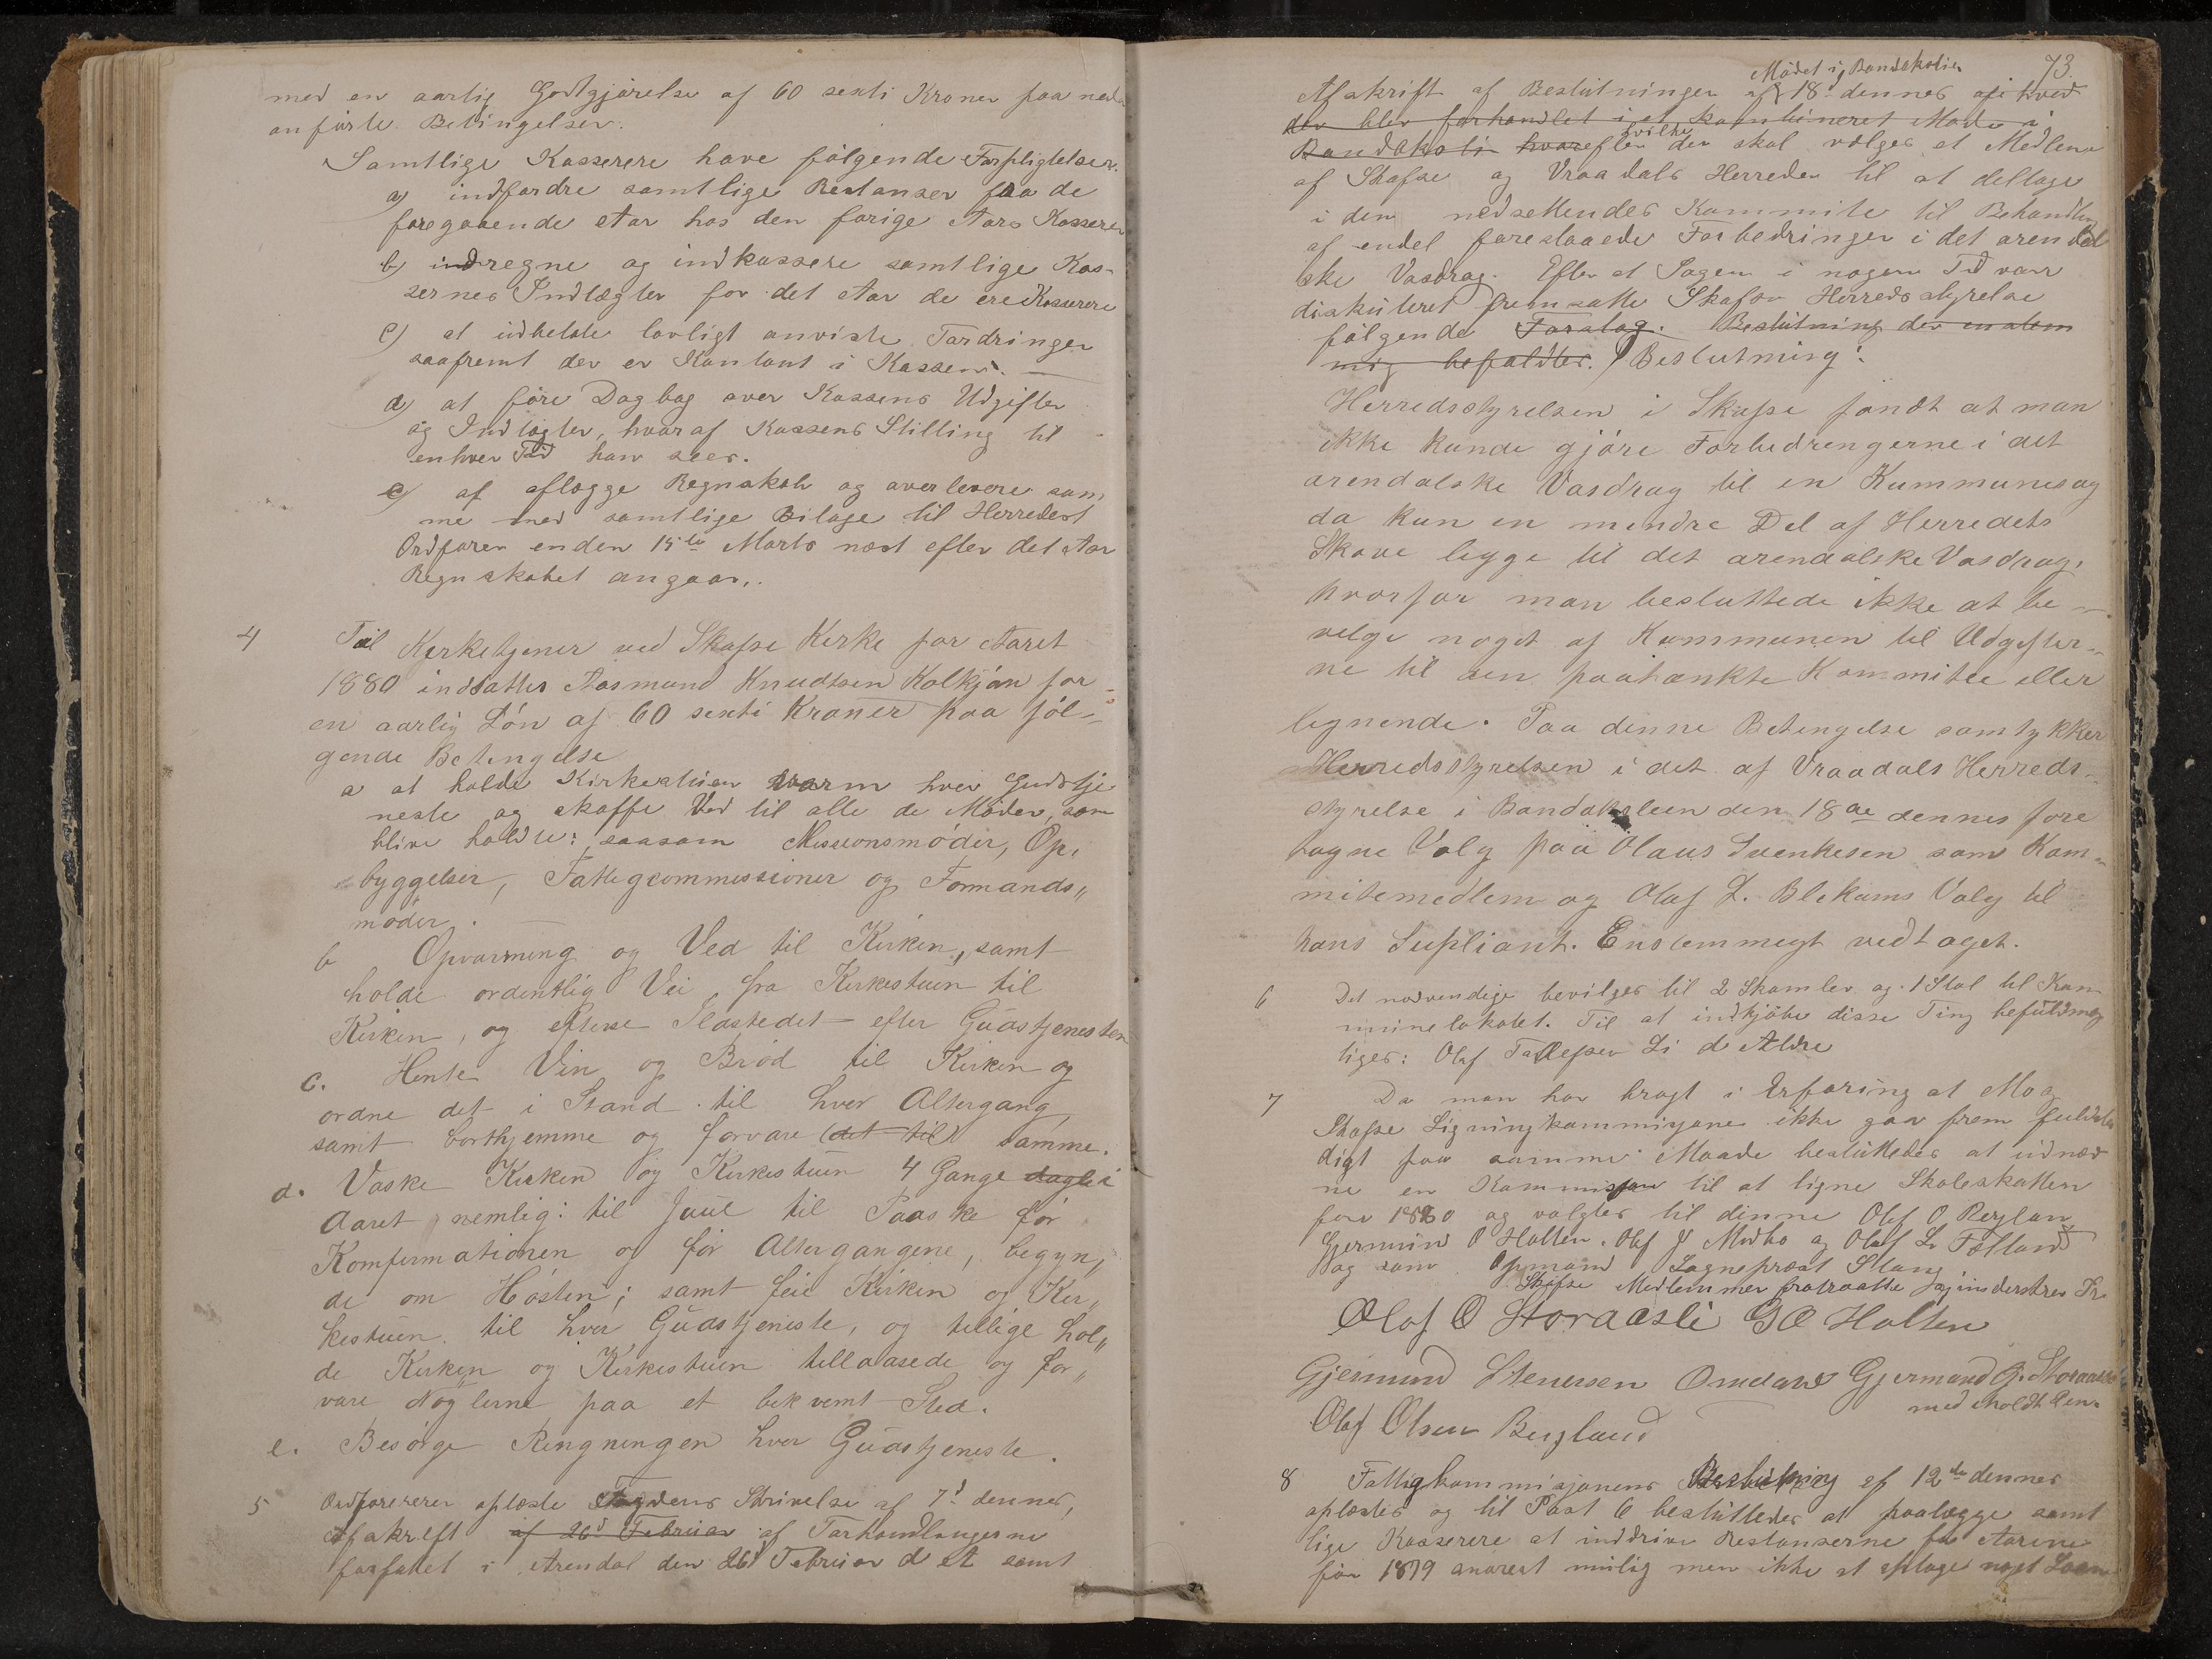 med en aarlig Godtgjörelse af 60 sexti Kroner paa ned-
anförte Betingelser.
Samtlige Kasserere have fölgende Forpligtelser.
a) indfordre samtlige Restanser fra de
foregaaende Aar hos den forige Aars Kasserer
b) indregne og indkassere samtlige Kas-
sernes Indtægter for det Aar de ere Kasserere
c) at udbetale lovligt anviste Fordringer
saafremt der er Kontant i Kassen. —
d) at före Dagbog over Kassens Udgifter
og Indtægter, hvoraf Kassens Stilling til
enhver Tid kan sees.
e) af aflægge Regnskab og overlevere sam,
me med samtlige Bilage til Herredets
Ordförer enden 15de Marts næst efter det Aar
Regnskabet angaar,.
4 Til Kirketjener ved Skafse Kirke for Aaret
1880 indsattes Aasmund Knudtsen Kolkjön for
en aarlig Lön af 60 sexti Kroner paa föl-
gende Betingelse
a at holde Kirkestuen warm hver Gudstje
neste og skaffe Ved til alle de Möder, som
blive holdte: saasom Missionsmöder, Op,
byggelser, Fattigcommissioner og Formands„
möder. —
b Opvarming og Ved til Kirken, samt
holde ordentlig Vei fra Kirkestuen til
Kirken, og efterse Ildstedet efter Gudstjenesten
c. Hente Vin og Bröd til Kirken og
ordne det i Stand til hver Altergang,
samt borthjemme og forvare (det til) samme.
d. Vaske Kirken og Kirkestuen 4 Gange dagli i
Aaret, nemlig: til Juul til Paaske för
Komfirmationen og för Altergangene, begyn,
de om Hösten; samt feie Kirken og Kir„
kestuen til hver Gudstjeneste, og tillige hol„
de Kirken og Kirkestuen tillaasede og for„
vare Nöglerne paa et bekvemt Sted.
e. Besörge Ringningen hver Gudstjeneste.
5 Ordförerer oplæste Fogdens Skrivelse af 7d dennes,
Afskrift af 26d Februar af Forhandlingerne
forfattet i Arendal den 26d Februar d A samt
73.
Mödet i Bandaksli
Afskrift af Beslutninger af 18. dennes afi hvad
der blev forhandlet i et kombineret Möde i
hvilke
Bandaksli hvorefter der skal vælges et Medlem
af Skafse og Vraadals Herreder til at deltage
i den nedsættendes Kommite til Behandling
af endel foreslaaede Forbedringer i det arendal
ske Vasdrag. Efter at Sagen i nogen Tid var
diskuteret fremsatte Skafse Herredsstyrelse
fölgende Forslag. Beslutning der enstem
mig befaldtes. Beslutning:
Herredsstyrelsen i Skafse fandt at man
ikke kunde gjöre Forbedringerne i det
arendalske Vasdrag til en Kummunesag
da kun en mindre Del af Herredets
Skove ligge til det arendalske Vasdrag,
hvorfor man besluttede ikke at be-
velge noget af Kommunen til Udgifter„
ne til den paatænkte Kommitee eller
lignende. Paa dinne Betingelse samtykker
Herredsstyrelsen i det af Vraadals Herreds-
styrelse i Bandaksleen den 18de dennes fore
tagne Valg paa Olaus Svenkesen som Kom„
mitemedlem og Olaf L. Blekums Valg til
hans Supliant. Enstemmegt vedtaget.
6 Det nodvendige bevilges til 2 Skamler og 1 Stol til Kom
munelokalet. Til at indkjöbe disse Ting befuldmæg
tiges: Olaf Tallefsen Li d Ældre
7 Da man har bragt i Erfaring at Mo og
Skafse Ligningkommisjone ikke gaar frem fuldstæn
digt paa samme Maade besluttedes at udnæv
ne en Kommisjon til at ligne Skoleskatten
for 1880 og valgtes til dinne Olaf O Berglan
Gjermund O Holten. Olaf J Midbo og Olaf L. Felland
og som Opmand Sogneprest Stang
Skafse Medlemmer
Olaf O Storaasli G O Holten
Gjermund Stenersen Omdahl Gjermund G. Storaasli
med iholdt Pen.
Olaf Olsen Berglaud
8 Fattigkommisjonens Beslutning af 12te dennes
oplæstes og til Post 6 besluttedes at paalægge samt
lige Kasserere at inddrive Restanserne fra Aarene
för 1879 snarest mulig men ikke at optage noget Laan